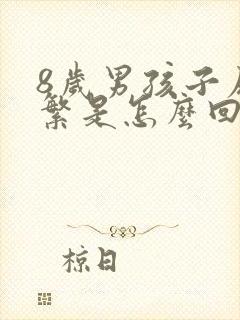 8歲男孩子
繁是怎麼回
椋日